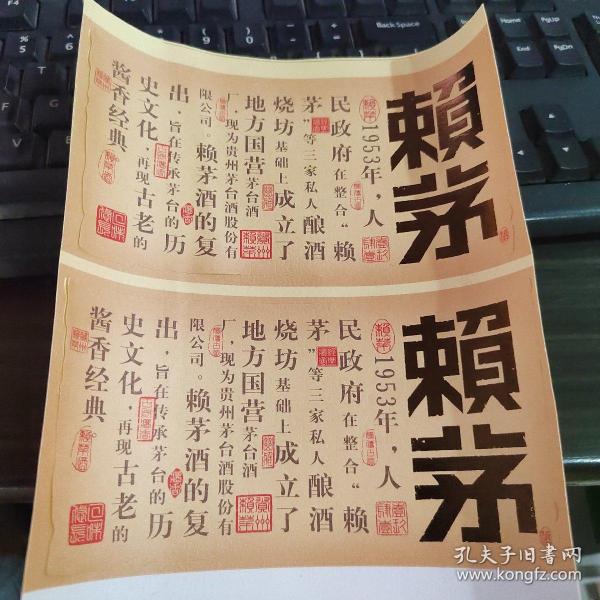 賴茅
1953年，人
民政府在整合“赖
茅”等三家私人酿酒
烧坊基础上成立了
地方国营茅台酒
厂，现为贵州茅台酒股份有
限公司。赖茅酒的复
出，旨在传承茅台的历
史文化，再现古老的
酱香经典。
賴茅
1953年，人
民政府在整合“赖
茅”等三家私人酿酒
烧坊基础上成立了
地方国营茅台酒
厂，现为贵州茅台酒股份有
限公司。赖茅酒的复
出，旨在传承茅台的历
史文化，再现古老的
酱香经典。
孔夫子旧书网
www.kongfz.com